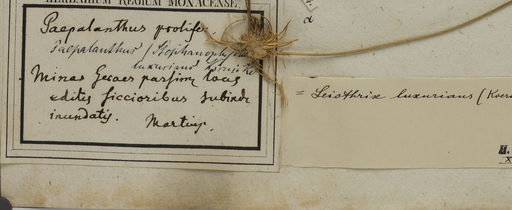 HERBARIUM REGIUM MONACENSE.
Paepalanthus prolifer
Paepalanthus (Stephanophyllum
luxurians
Minas Geraes passim locis
editis siccioribus subinde
inundatis. Martius.
= Leiothrix luxurians (Koern